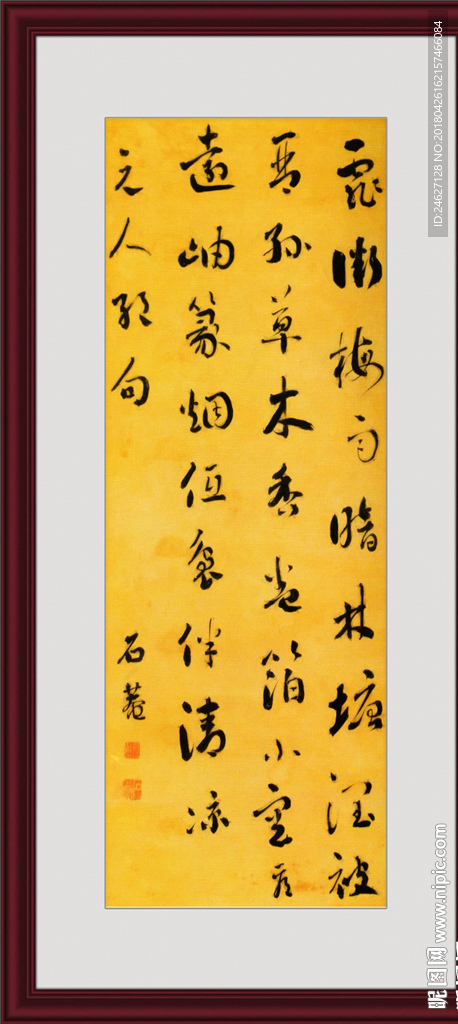 霏微梅雨暗林塘潤被
孫草木香卷箔小窗看
遠岫篆烟低裊伴清凉
元人絶句
石菴
ID:24627128 NO:20180426162157466084
昵图网 www.nipic.com